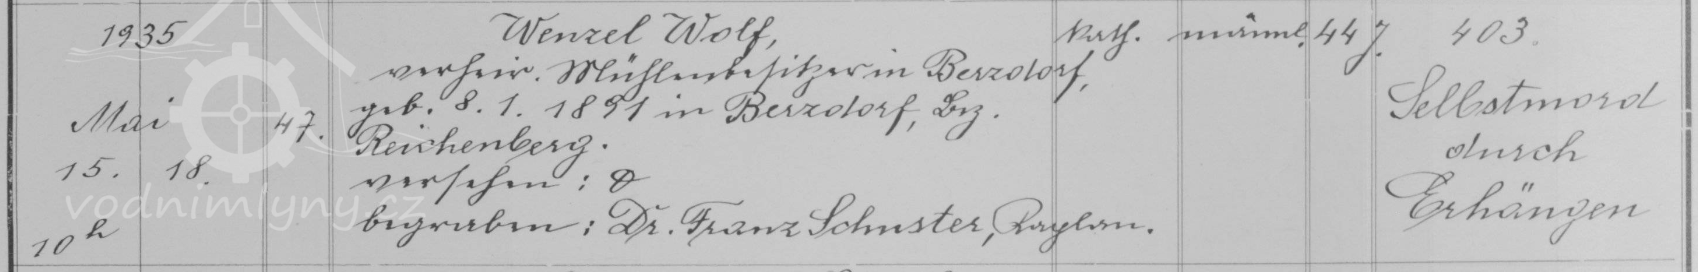 1935 Wenzel Wolf, kath. männl. 44 J. 403.
verheir. Mühlenbesitzer in Berzdorf,
Mai 47. geb. 8. 1. 1891 in Berzdorf, Bez. Selbstmord
Reichenberg. durch
15. 18. versehen: Erhängen
vodnimlyny.cz
10h begraben: Dr. Franz Schuster, Kaplan.